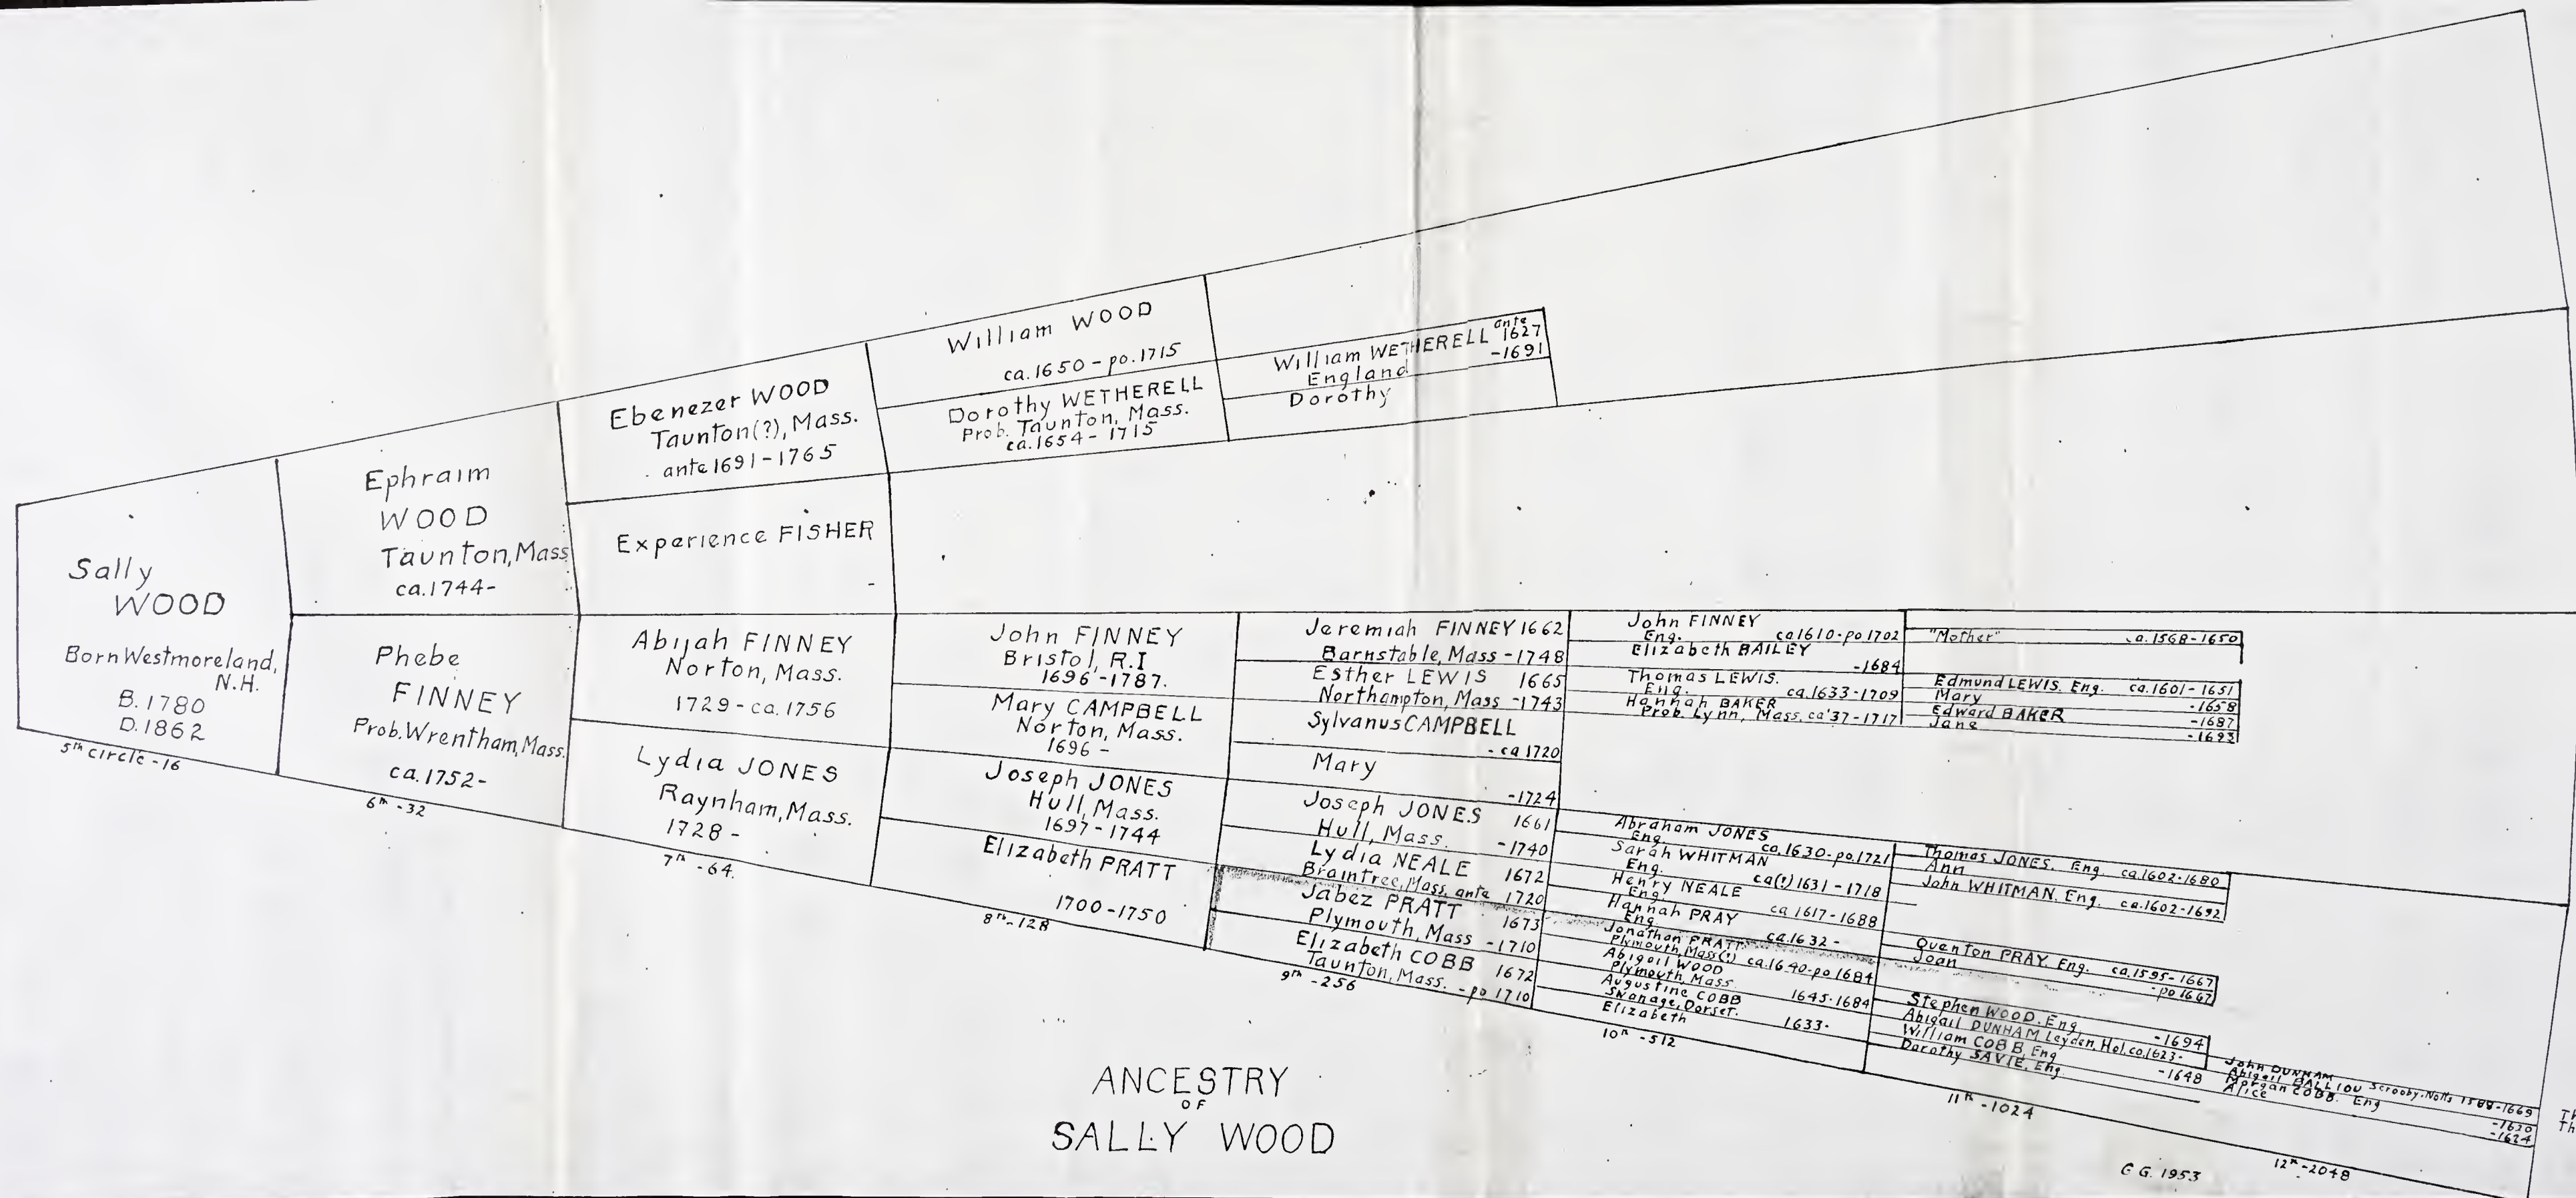 Sally
WOOD
Born Westmoreland,
N.H.
B. 1780
D. 1862
5th circle - 16
Ephraim
WOOD
Taunton, Mass
ca. 1744-
Phebe
FINNEY
Prob. Wrentham, Mass.
ca. 1752-
6th - 32
Ebenezer WOOD
Taunton(?), Mass.
ante 1691 - 1765
Experience FISHER
Abijah FINNEY
Norton, Mass.
1729 - ca. 1756
Lydia JONES
Raynham, Mass.
1728 -
7th - 64.
William WOOD
ca. 1650 - po. 1715
Dorothy WETHERELL
Prob. Taunton, Mass.
ca. 1654 - 1715
John FINNEY
Bristol, R.I
1696 - 1787.
Mary CAMPBELL
Norton, Mass.
1696 -
Joseph JONES
Hull, Mass.
1697 - 1744
Elizabeth PRATT
1700 - 1750
8th - 128
William WETHERELL ante 1627
England -1691
Dorothy
Jeremiah FINNEY 1662
Barnstable, Mass - 1748
Esther LEWIS 1665
Northampton, Mass - 1743
Sylvanus CAMPBELL
- ca 1720
Mary
-1724
Joseph JONES 1661
Hull, Mass. - 1740
Lydia NEALE 1672
Braintree, Mass. ante 1720
Jabez PRATT 1673
Plymouth, Mass - 1710
Elizabeth COBB 1672
Taunton, Mass. - po 1710
9th - 256
John FINNEY
Eng. ca 1610 - po 1702
Elizabeth BAILEY
-1684
Thomas LEWIS.
Eng. ca. 1633 - 1709
Hannah BAKER
Prob. Lynn, Mass. ca '37 - 1717
Abraham JONES
Eng. ca. 1630 - po. 1721
Sarah WHITMAN
Eng. ca(?) 1631 - 1718
Henry NEALE
Eng. ca 1617 - 1688
Hannah PRAY
Eng. ca. 1632 -
Jonathan PRATT
Plymouth, Mass(?) ca. 1640 - po 1684
Abigail WOOD
Plymouth, Mass. 1645 - 1684
Augustine COBB
Swanage, Dorset. 1633 -
Elizabeth
10th - 512
"Mother" ca. 1568 - 1650
Edmund LEWIS. Eng. ca. 1601 - 1651
Mary -1658
Edward BAKER -1687
Jane -1693
Thomas JONES. Eng. ca. 1602 - 1680
Ann
John WHITMAN. Eng. ca. 1602 - 1692
Quenton PRAY. Eng. ca. 1595 - 1667
Joan - po 1667
Stephen WOOD. Eng -1694
Abigail DUNHAM, Leyden, Hol. ca. 1623 -
William COBB, Eng
Dorothy SAVIE, Eng -1648
11th - 1024
John DUNHAM Scrooby - Notts 1588 - 1669
Abigail BALLIOU
Morgan COBB. Eng -1630
Alice -1624
12th - 2048
Th
Th
ANCESTRY
OF
SALLY WOOD
G G. 1953